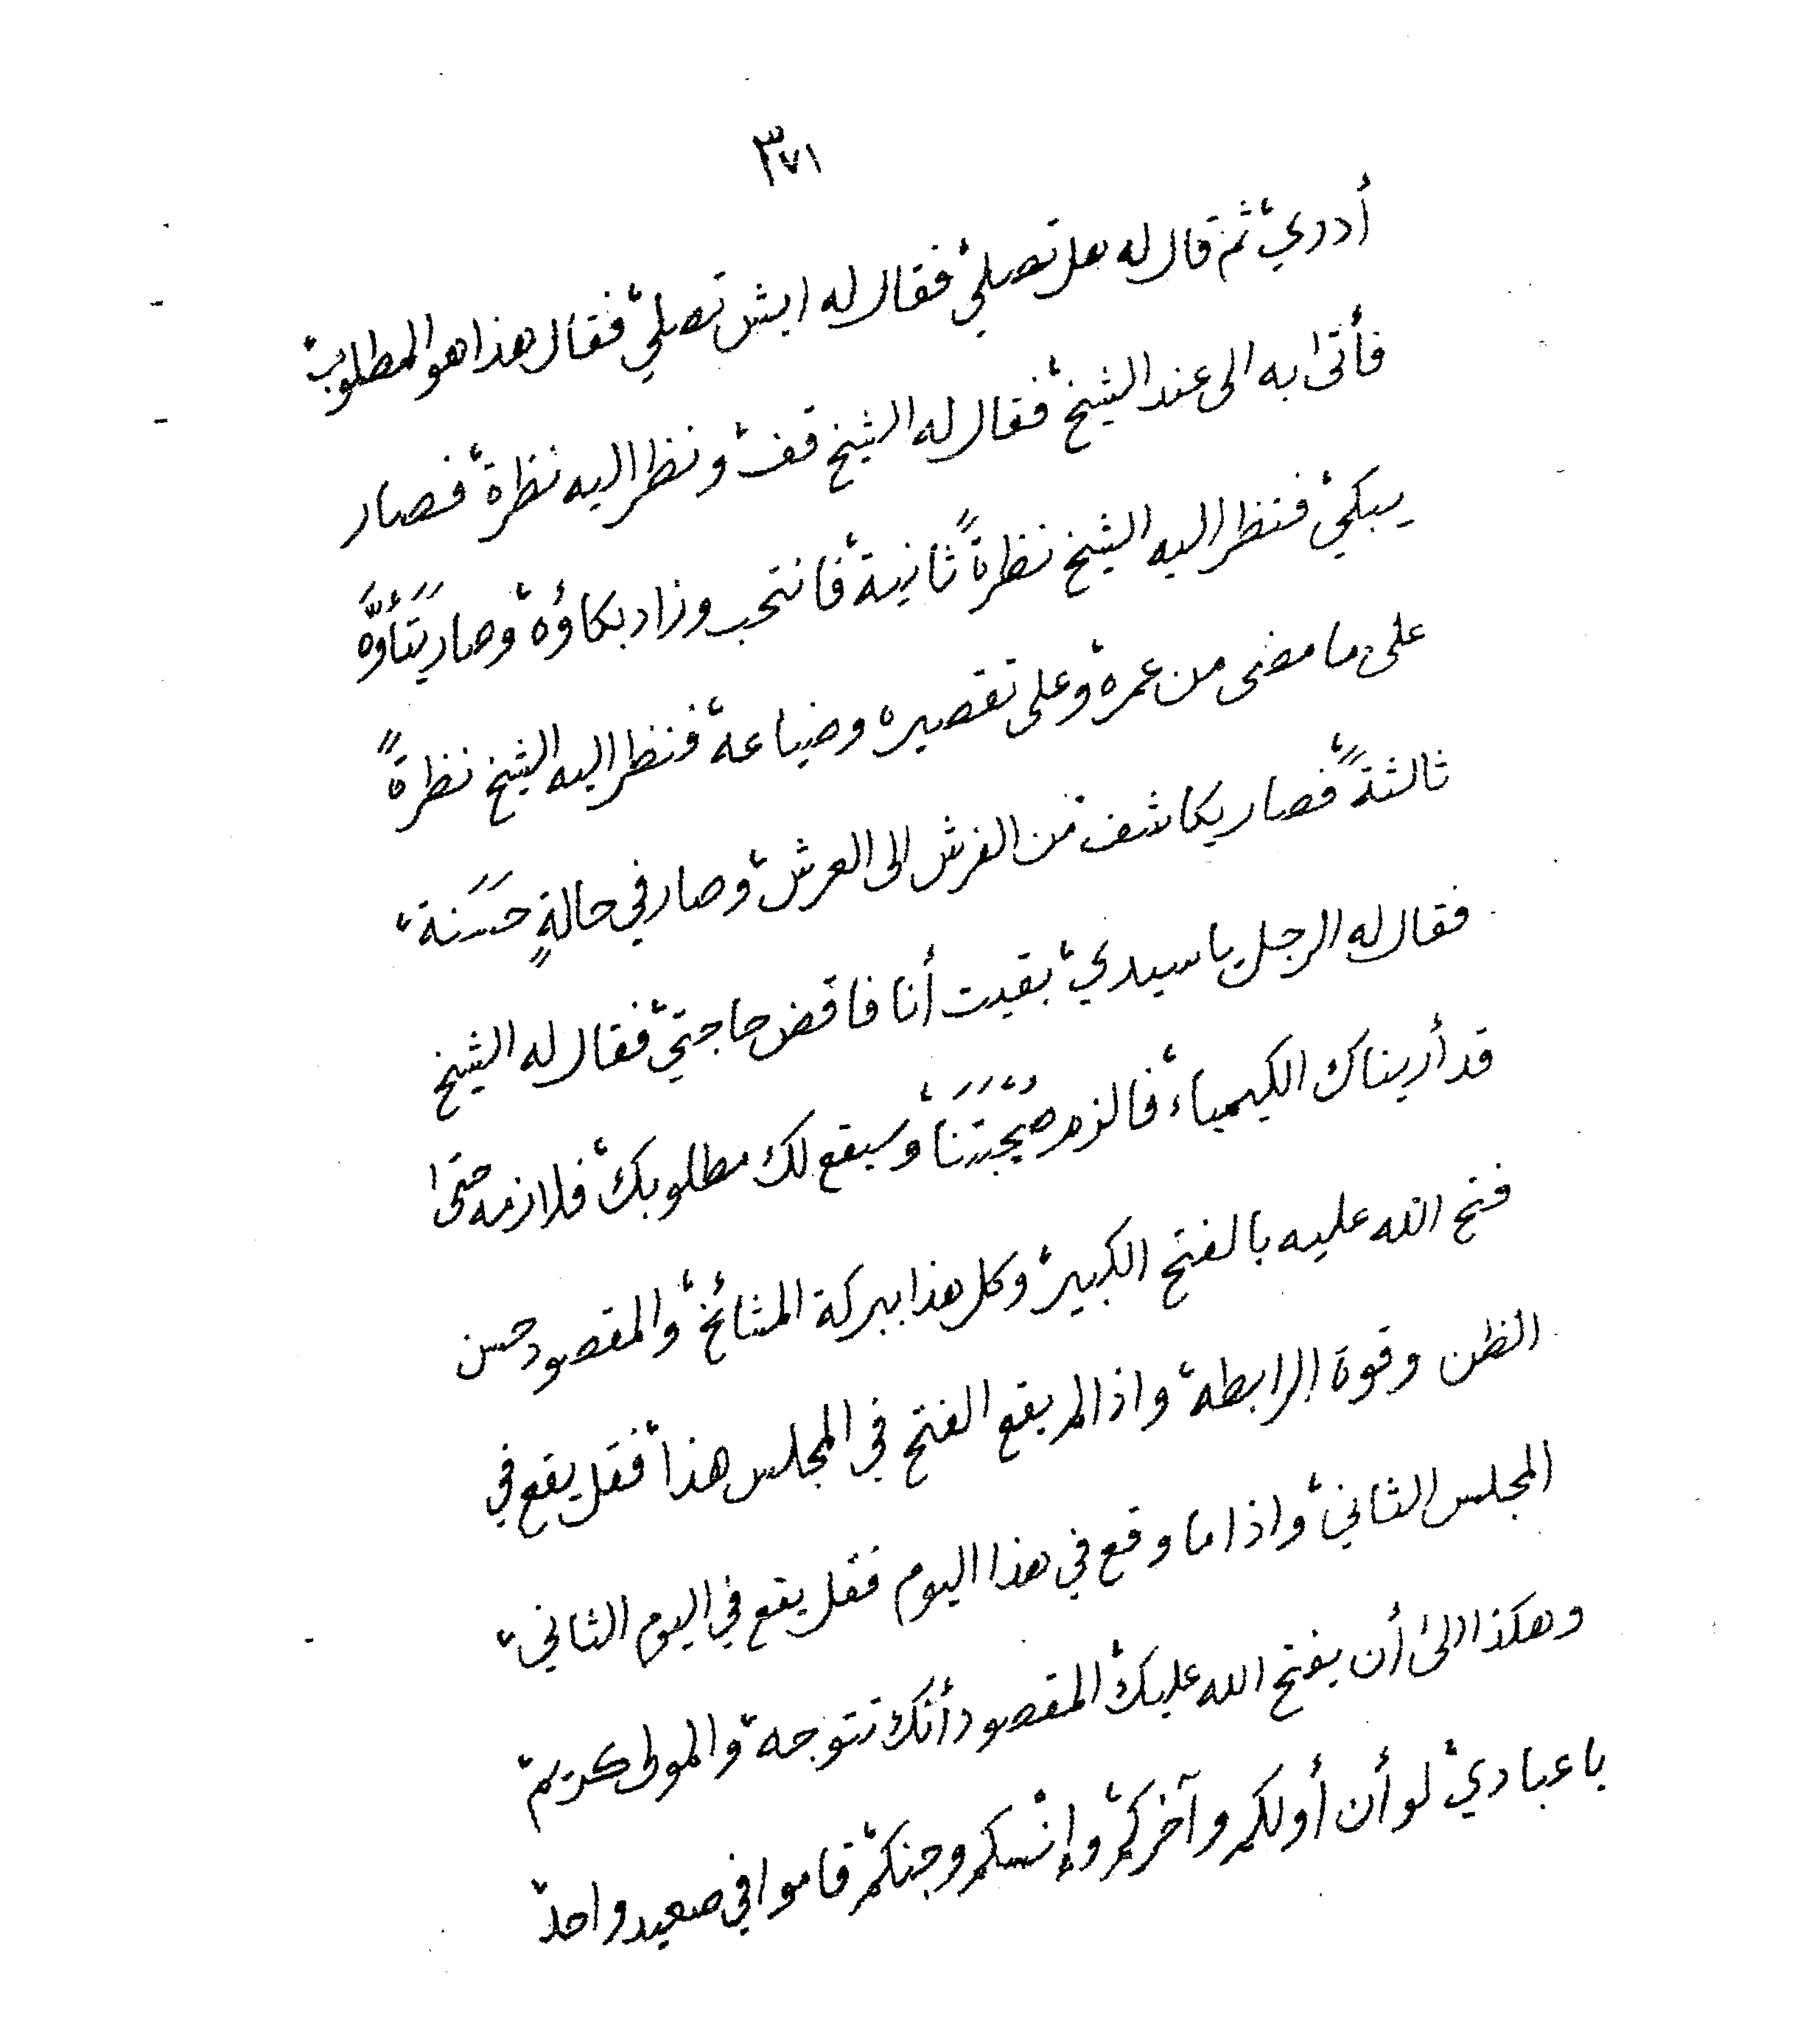 ٣٧١
أدري، ثم قال له هل تصلي، فقال له ايش تصلي، فقال هذا هو المطلوب،
فأتى به الى عند الشيخ، فقال له الشيخ قف، ونظر اليه نظرة، فصار
يبكي، فنظر اليه الشيخ نظرةً ثانية، فانتحب وزاد بكاؤه، وصار يَتَأَوَّه
على ما مضى من عمره، وعلى تقصيره وضياعه، فنظر اليه الشيخ نظرةً
ثالثةً، فصار يكاشف من الفرش الى العرش، وصار في حالةٍ حَسَنة،
فقال له الرجل يا سيدي، بقيت أنا فاقض حاجتي، فقال له الشيخ
قد أريناك الكيمياء، فالزم صُحْبَتَنَا، وسيقع لك مطلوبك، فلازمه حتى
فتح الله عليه بالفتح الكبير، وكل هذا ببركة المشائخ، والمقصود حسن
الظن وقوة الرابطه، واذا لم يقع الفتح في المجلس هذا، فقل يقع في
المجلس الثاني، واذا ما وقع في هذا اليوم فقل يقع في اليوم الثاني،
وهكذا الى أن يفتح الله عليك، المقصود أنك تتوجه، والمولى كريم،
يا عبادي، لو أن أولكم وآخركم، وإنْسكم وجنكم، قاموا في صعيد واحد،